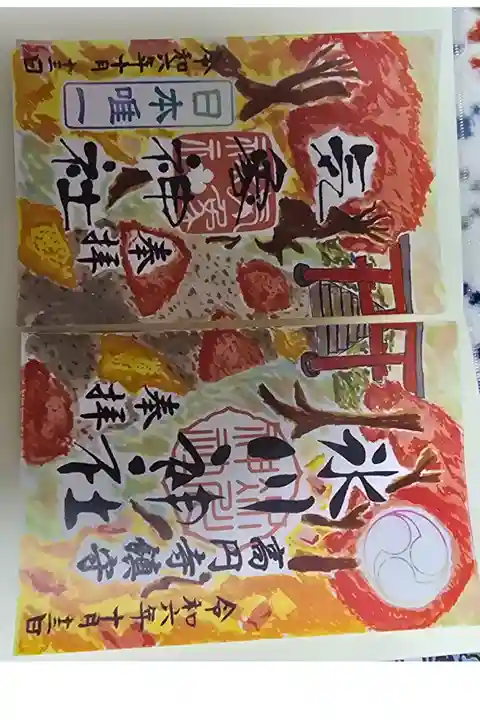 奉拝
気象神社
日本唯一
令和六年十月十三日
奉拝
氷川神社
高円寺鎮守
令和六年十月十三日